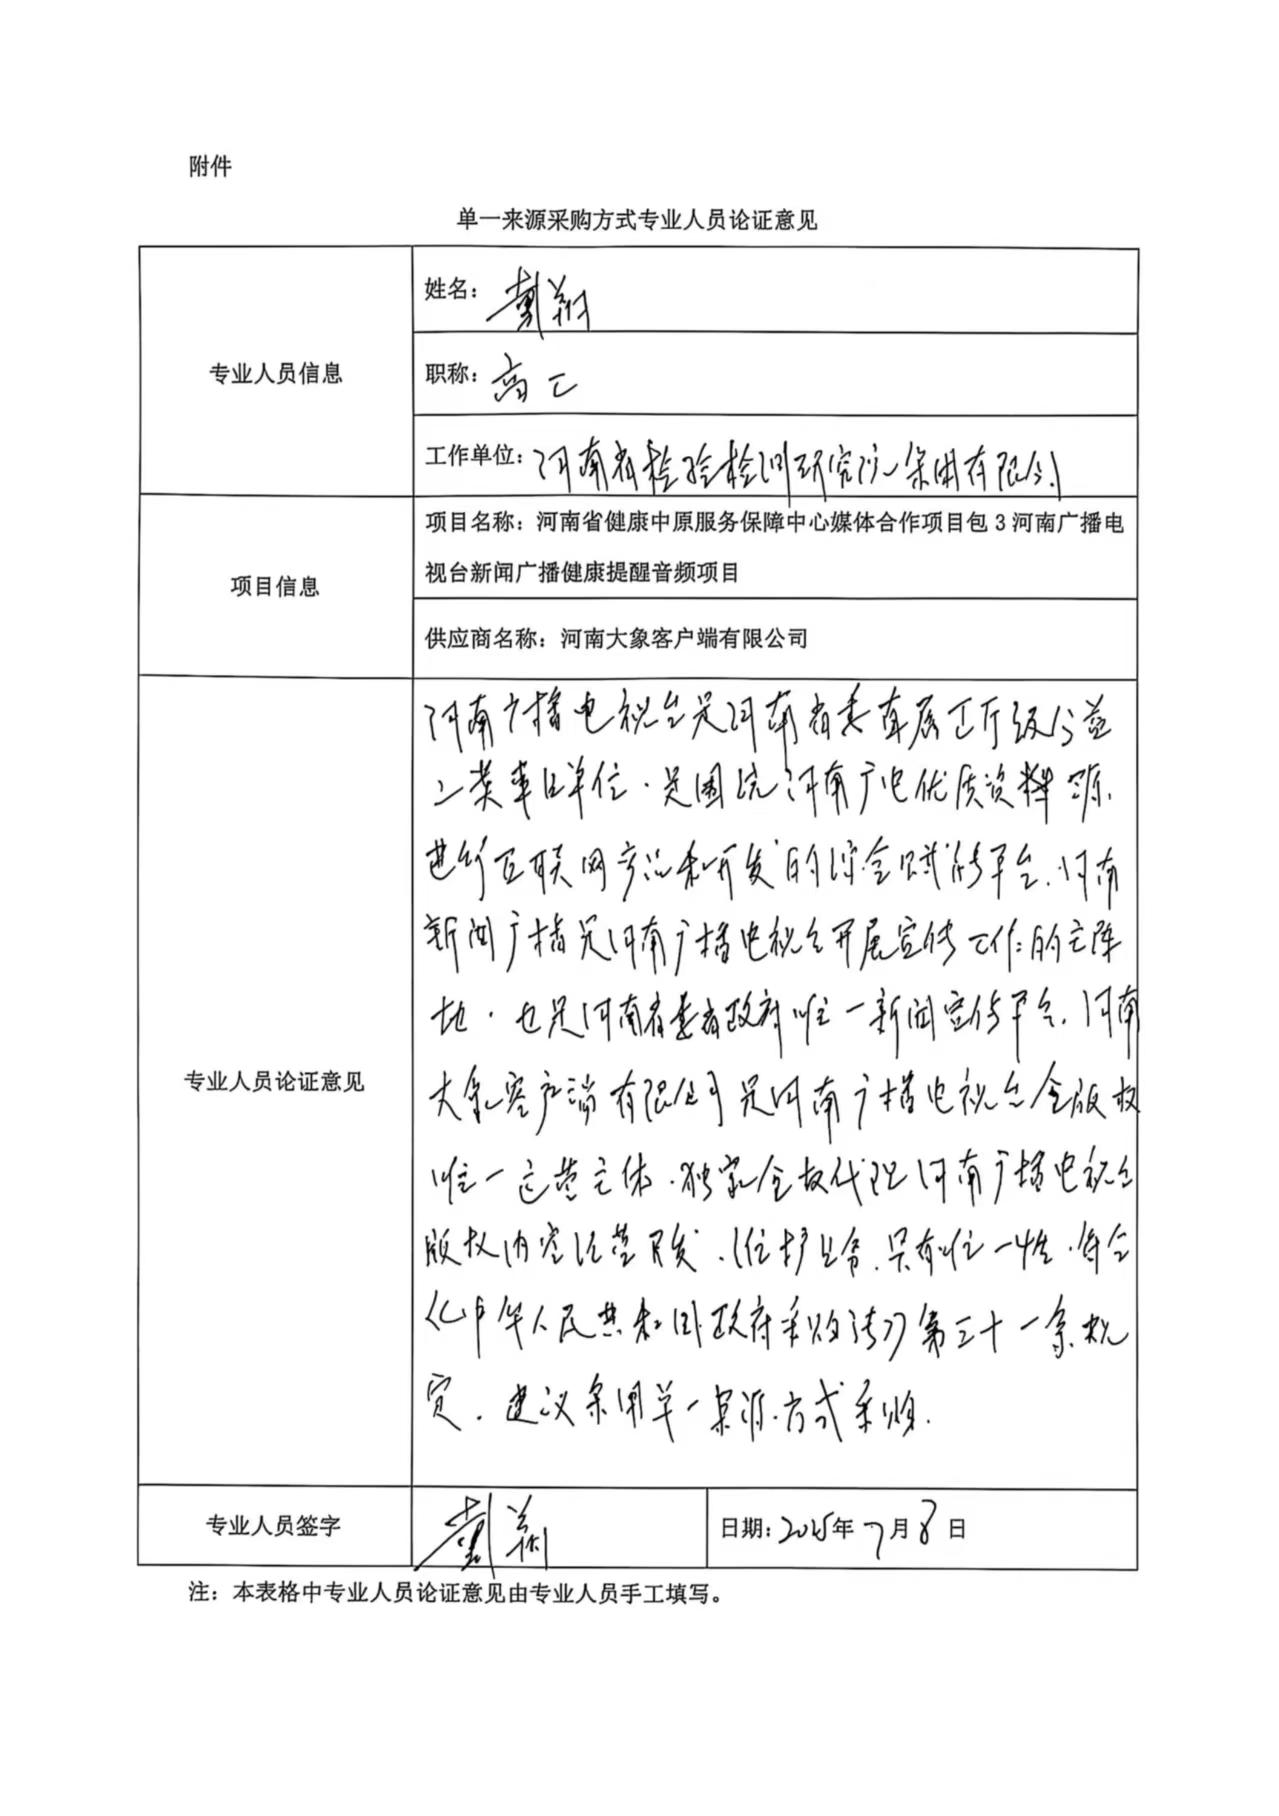 附件
单一来源采购方式专业人员论证意见
专业人员信息
姓名：戴翔
职称：高工
工作单位：河南省检验检测研究院集团有限公司
项目信息
项目名称：河南省健康中原服务保障中心媒体合作项目包 3 河南广播电
视台新闻广播健康提醒音频项目
供应商名称：河南大象客户端有限公司
专业人员论证意见
河南广播电视台是河南省委直属正厅级公益
二类事业单位，是围绕河南广电优质资源，
进行互联网产品和开发的综合赋能平台，河南
新闻广播是河南广播电视台开展宣传工作的主阵
地，也是河南省委省政府唯一新闻宣传平台，河南
大象客户端有限公司是河南广播电视台全版权
唯一运营主体，独家全权代理河南广播电视台
版权内容运营开发、维护业务，具有唯一性，符合
《中华人民共和国政府采购法》第三十一条规
定，建议采用单一来源方式采购。
专业人员签字
戴翔
日期：2025年7月8日
注：本表格中专业人员论证意见由专业人员手工填写。